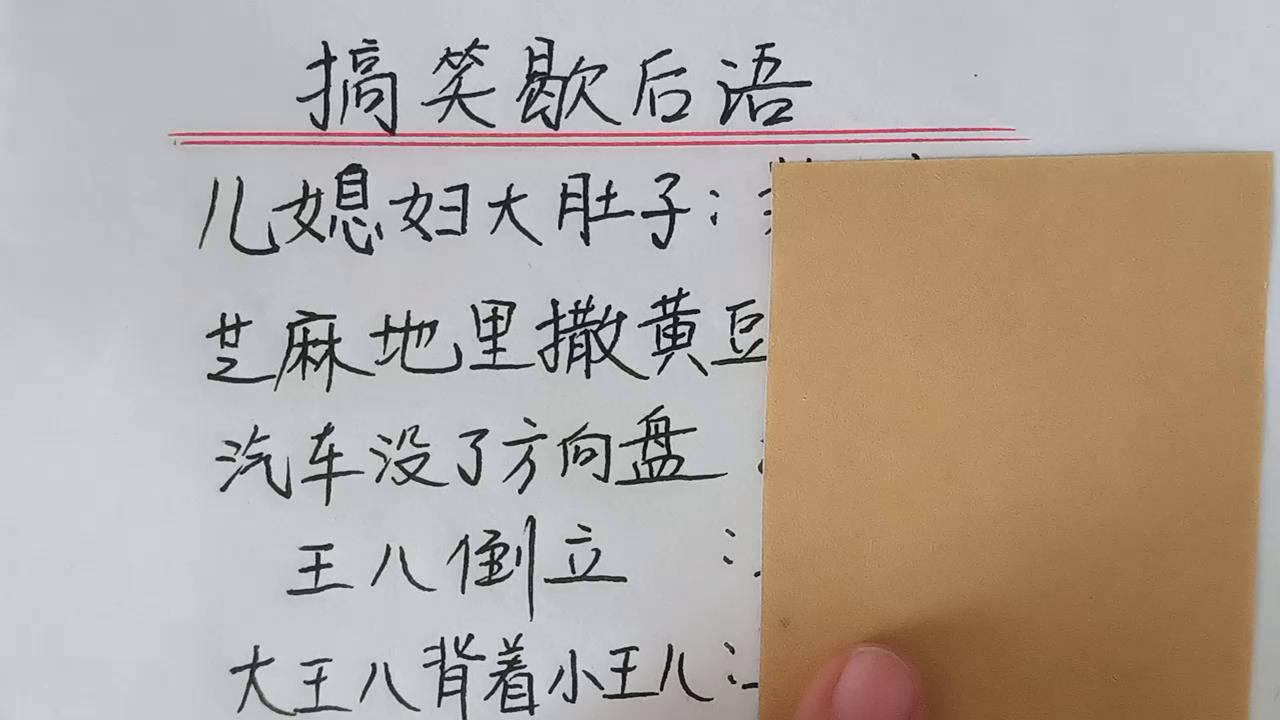 搞笑歇后语
儿媳妇大肚子:
芝麻地里撒黄豆
汽车没了方向盘:
王八倒立:
大王八背着小王八: